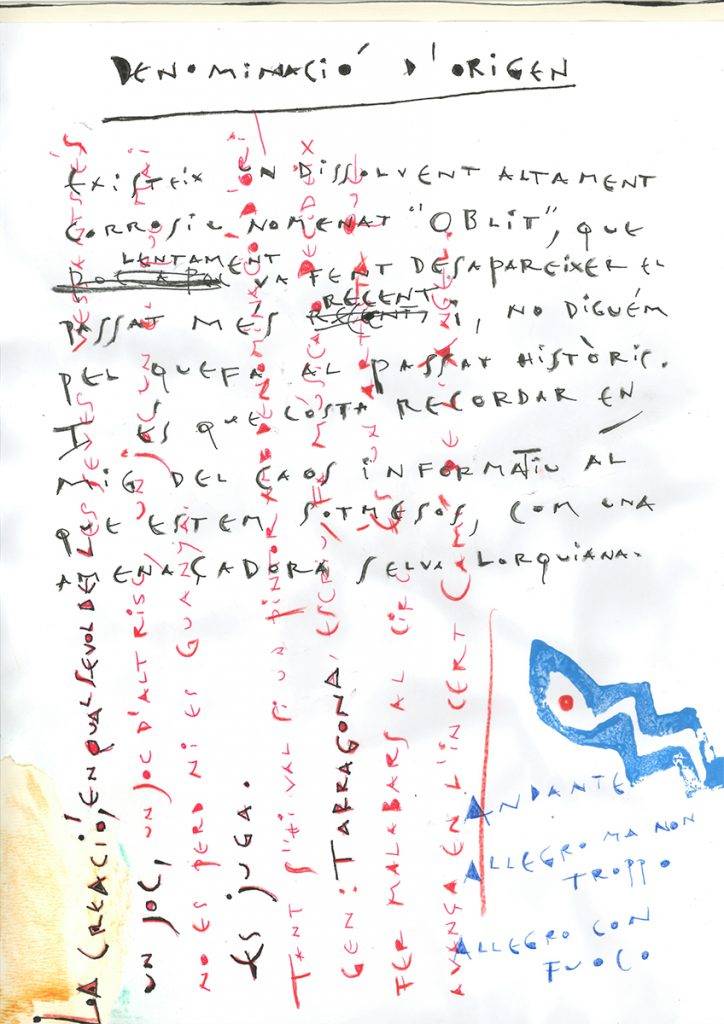 DENOMINACIÓ D'ORIGEN
EXISTEIX UN DISSOLVENT ALTAMENT
CORROSIU NOMENAT "OBLIT", QUE
LENTAMENT VA FENT DESAPAREIXER EL
PASSAT MÉS RECENT I, NO DIGUÉM
PEL QUE FA AL PASSAT HISTÒRIC.
I ÉS QUE COSTA RECORDAR EN
MIG DEL CAOS INFORMATIU AL
QUE ESTEM SOTMESOS, COM UNA
AMENAÇADORA SELVA LORQUIANA.
LA CREACIÓ, EN QUALSEVOL DE LES SEVES VESSANTS ÉS
UN JOC, UN JOC UN JOC ON EL MAI
NO ES PERD NI ES GUANYA.
ES JUGA.
TANT S'HI VAL SI UN PINTOR AMB DENOMINACIÓ D'ORI
GEN: TARRAGONA, ESCRIU, FA MÚSICA O DECIDEIX
FER MALABARS AL CIRC. ÉS UN ARTISTA QUE
AVANÇA EN L'INCERT CAMÍ DE
ANDANTE
ALLEGRO MA NON
TROPPO
ALLEGRO CON
FUOCO